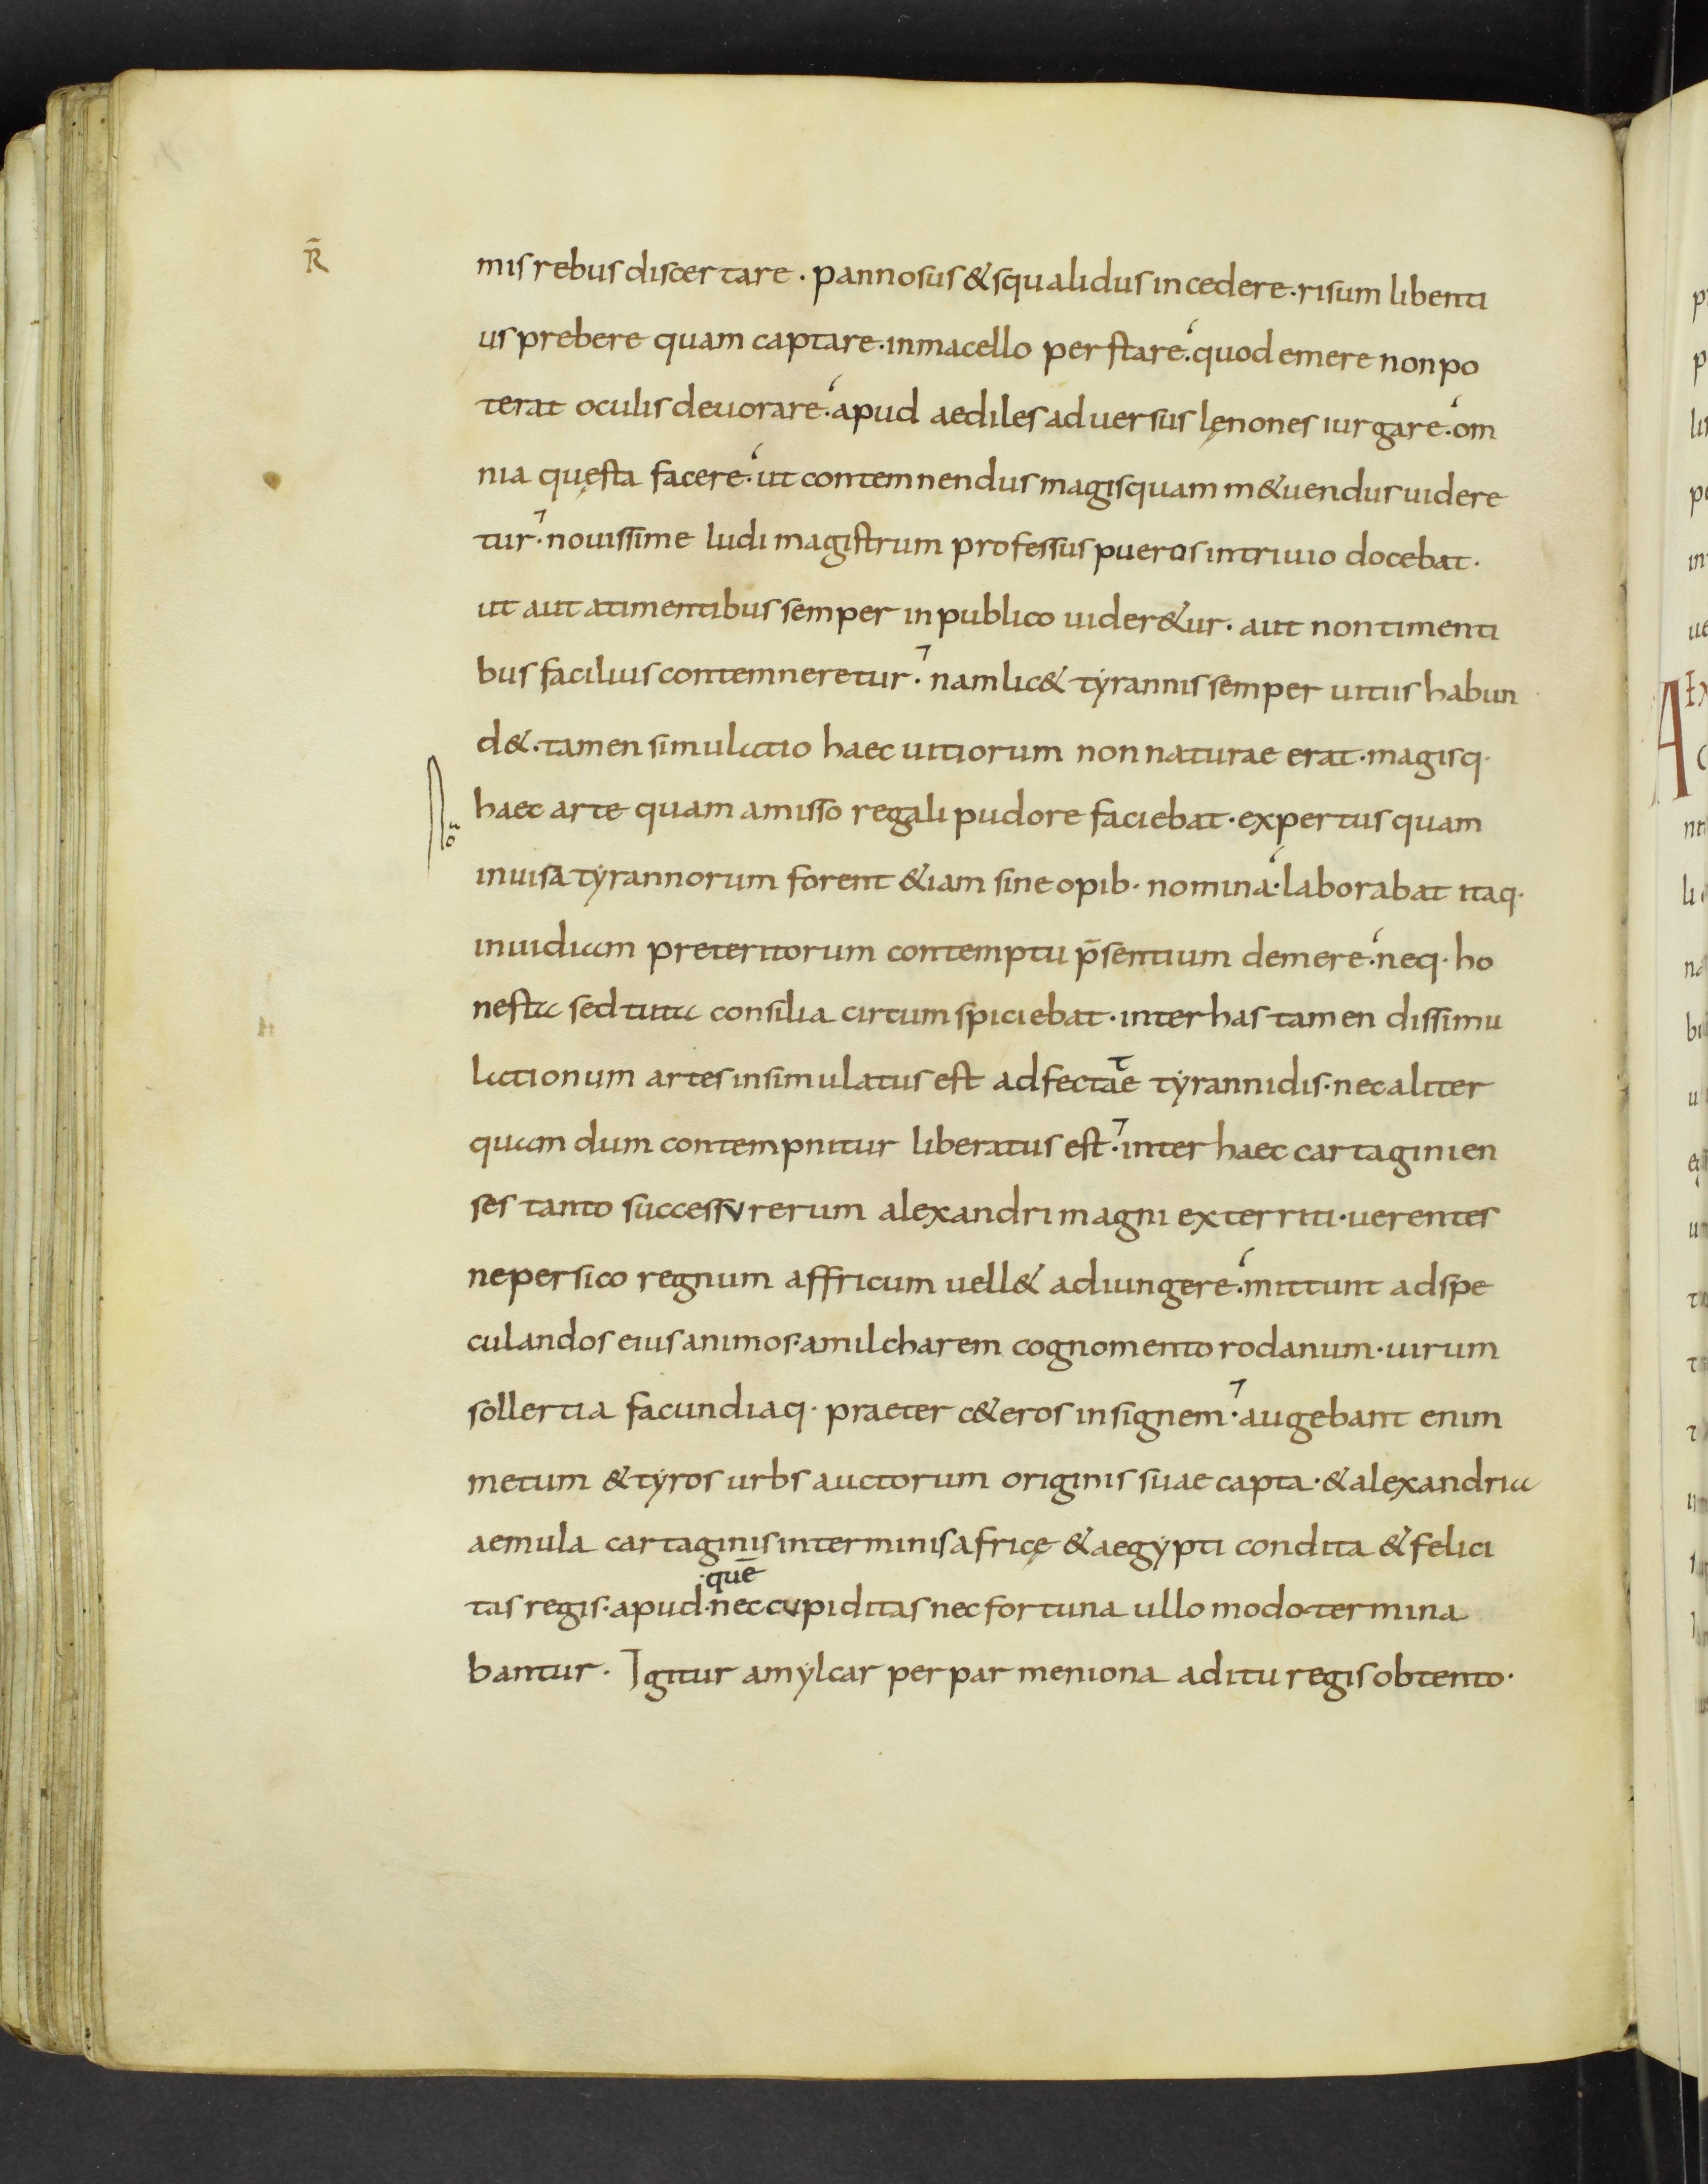 R̄
mis rebus discertare. pannosus & squalidus incedere. risum libenti
us prebere quam captare. in macello perstare. quod emere non po
terat oculis deuorare. apud aediles aduersus lęnones iurgare. om
nia quęsta facere. ut contemnendus magis quam m&uendus uidere
tur. nouissime ludi magistrum professus pueros in triuio docebat.
ut aut atimentibus semper in publico uider&ur. aut non timenti
bus facilius contemneretur. nam lic& tyrannis semper uitiis habun
d&. tamen simulatio haec uitiorum non naturae erat. magisq·
haec arte quam amisso regali pudore faciebat. expertus quam
inuisa tyrannorum forent &iam sine opib· nomina. laborabat itaq·
inuidiam preteritorum contemptu p̄sentium demere. neq· ho
nesta sed tuta consilia circumspiciebat. inter has tamen dissimu
lationum artes insimulatus est adfectatae tyrannidis. nec aliter
quam dum contempnitur liberatus est. inter haec cartaginien
ses tanto successv rerum alexandri magni exterriti. uerentes
ne persico regnum affricum uell& adiungere. mittunt ad spe
culandos eius animos. amilcharem cognomento rodanum. uirum
sollertia facundiaq· praeter c&eros insignem. augebant enim
metum & tyros urbs auctorum originis suae capta. & alexandria
aemula cartaginis in terminis africę & aegypti condita & felici
quē
tas regis. apud. nec cvpiditas nec fortuna ullo modo termina
bantur. Igitur amylcar per parmeniona aditu regis obtento.